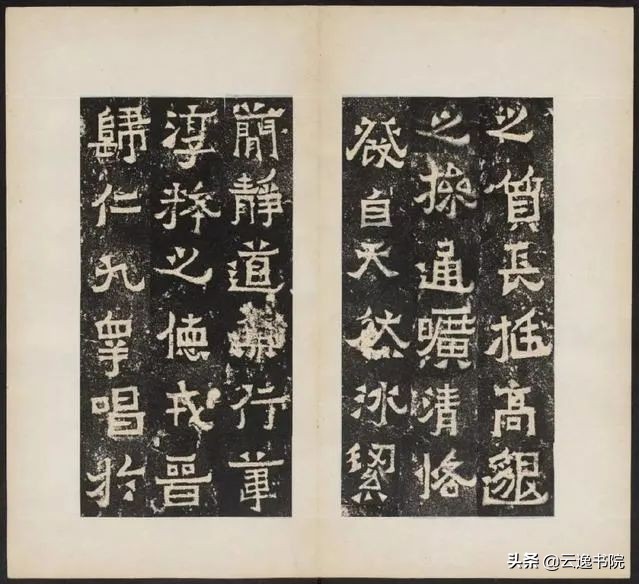 之質長挺高邈
之操通曠清恪
發自天然冰絜
簡靜道兼行葦
淳粹之德戎晉
歸仁九皋唱於
头条 @云逸书院